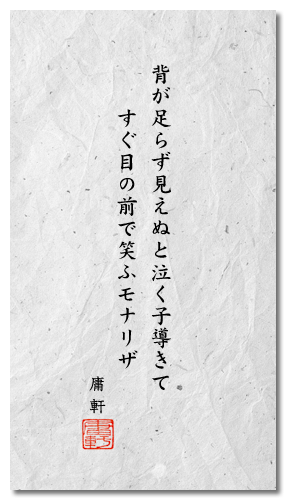 背が足らず見えぬと泣く子導きて
すぐ目の前で笑ふモナリザ
庸軒